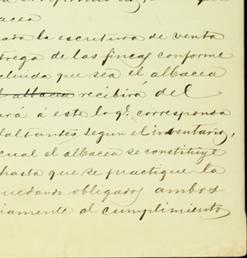 acea
la escritura de venta
trega de las fincas conforme
cluida que sea el albacea
el albacea recibirá del
ará a este lo qe. corresponda
faltantes segun el inventario,
cual el albacea se constituye
hasta que se practique la
quedando obligados ambos
riamente al cumplimiento